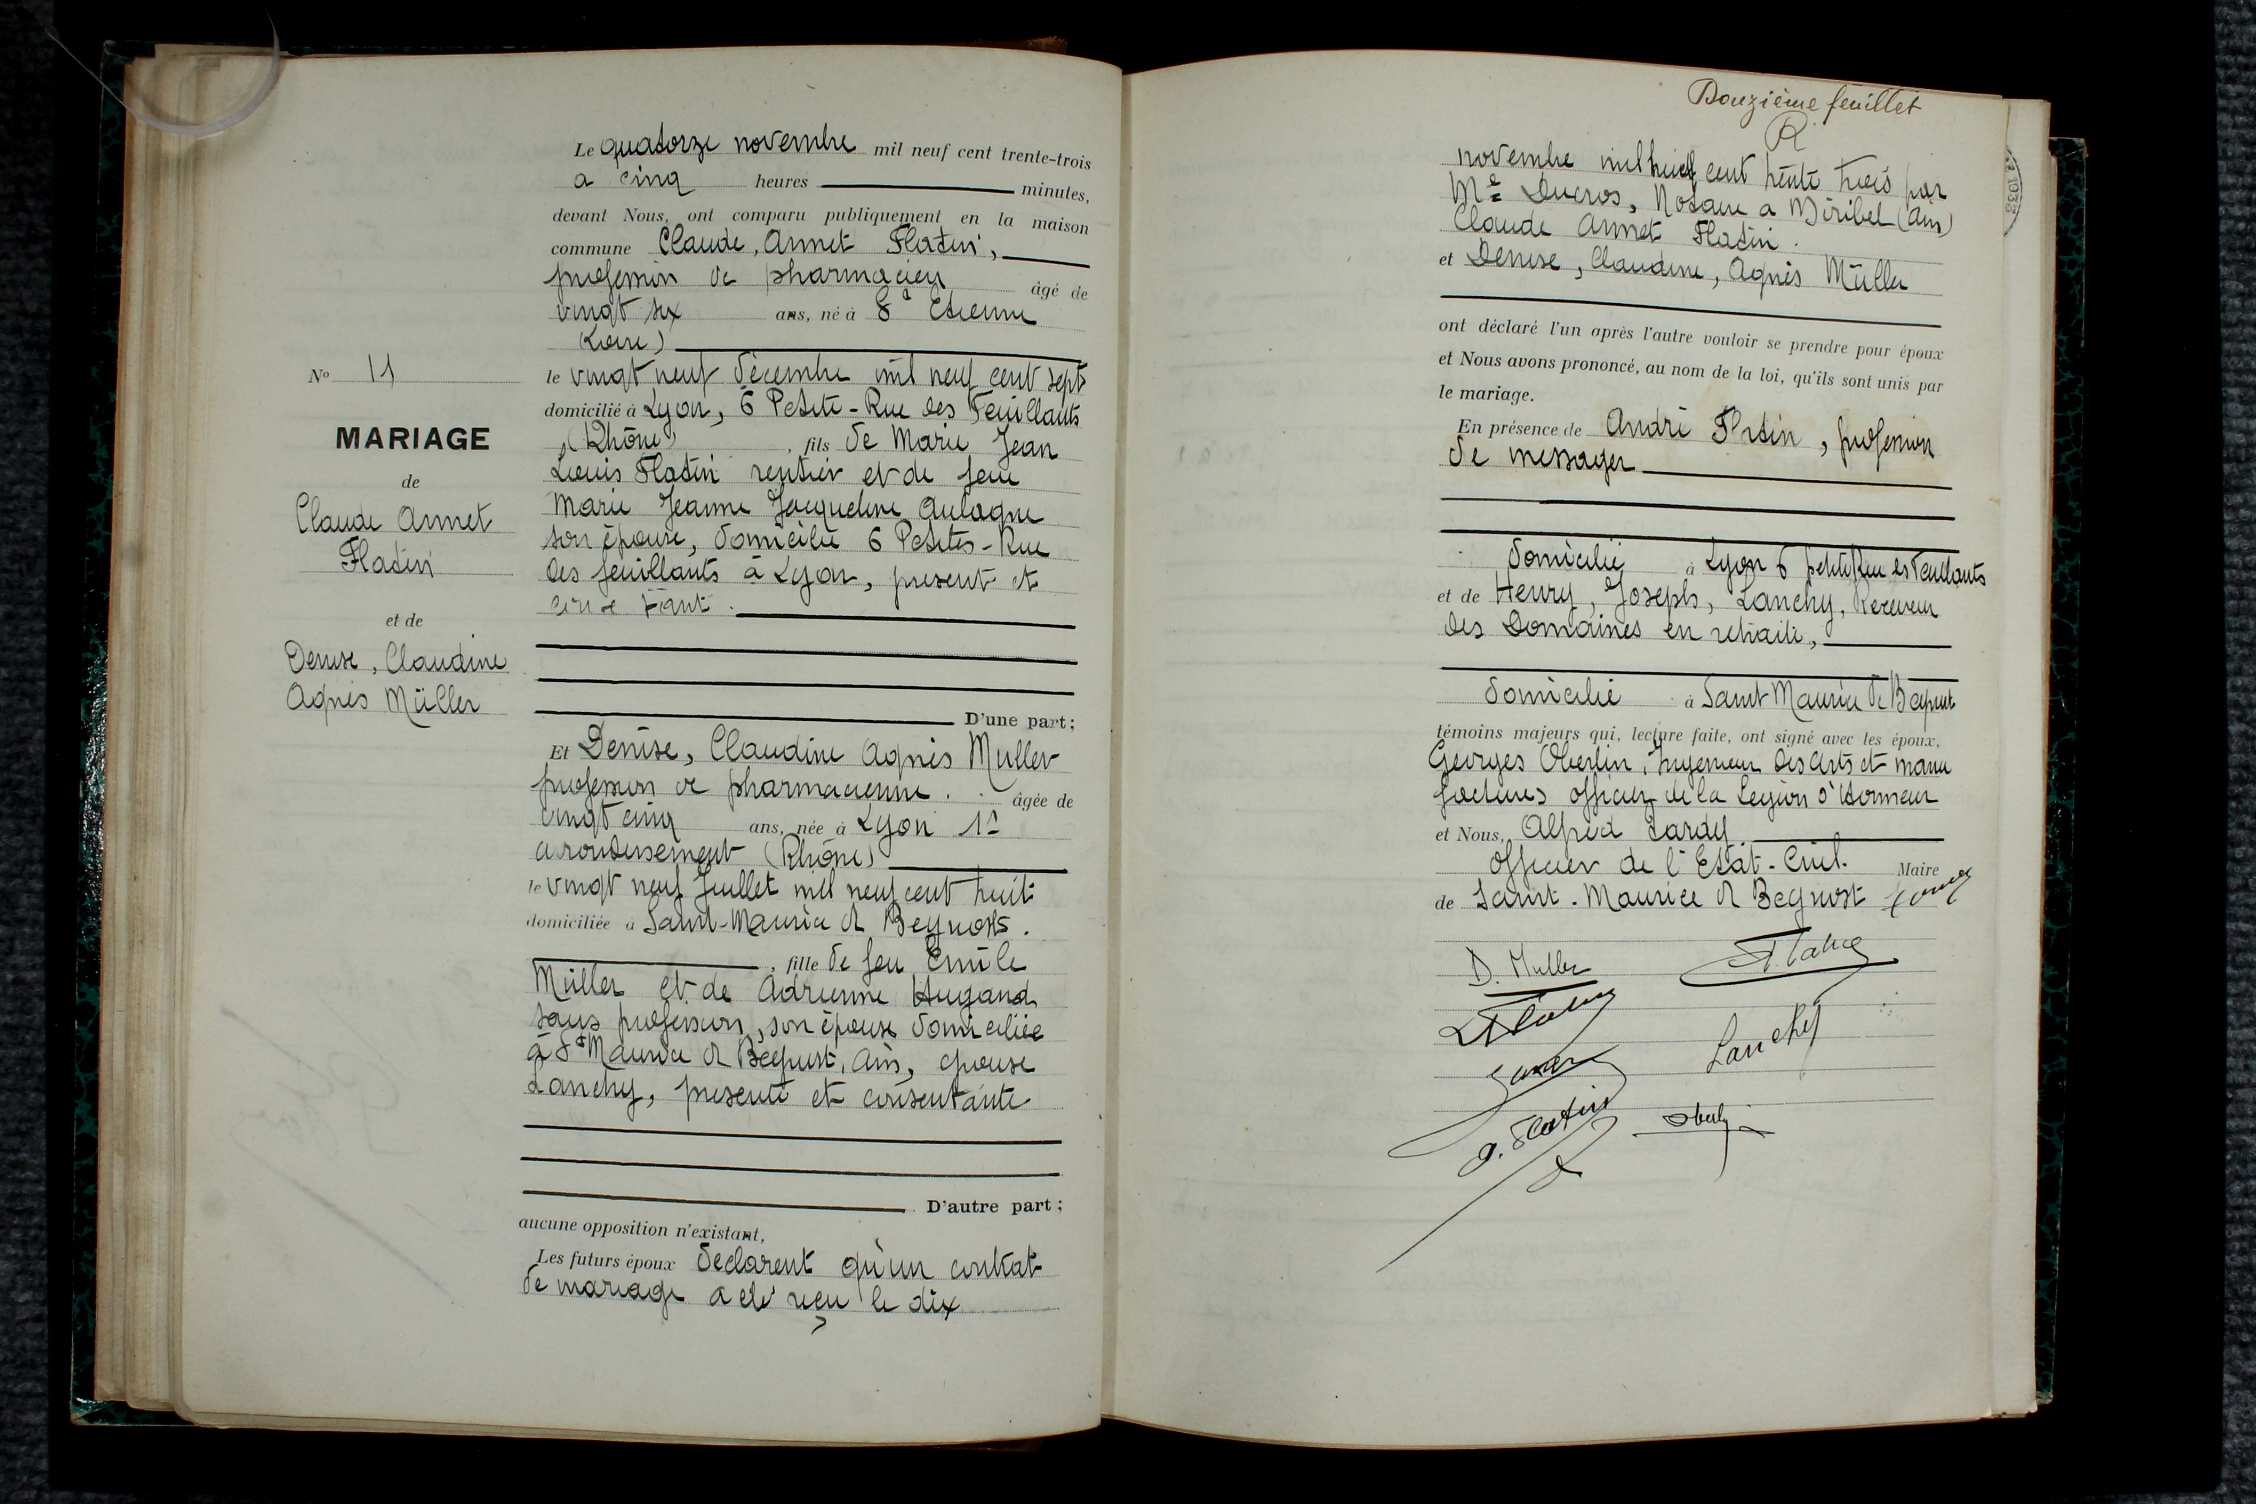 Le quatorze novembre mil neuf cent trente-trois
a cinq heures minutes,
devant Nous, ont comparu publiquement en la maison
commune Claude, Annet Flatin,
profession de pharmacien âgé de
vingt six ans, né à St Etienne
(Loire)
le vingt neuf décembre mil neuf cent sept
domicilié à Lyon, 6 Petite-Rue des Feuillants
(Rhône), fils de Marie Jean
Louis Flatin rentier et de feue
Marie Jeanne Jacqueline Aulagne
son épouse, domicilié 6 Petites-Rue
des feuillants à Lyon, présent et
D'une part;
Et Denise, Claudine Agnès Muller
profession de pharmacienne. âgée de
vingt cinq ans, née à Lyon 1r
arrondissement (Rhône)
le vingt neuf Juillet mil neuf cent huit
domiciliée à Saint-Maurice de Beynost.
, fille de feu Emile
Müller et de Adrienne Hugand
sans profession, son épouse domiciliée
à St Maurice de Beynost, Ain, épouse
Lanchy, présente et consentante
D'autre part;
aucune opposition n'existant,
Les futurs époux déclarent qu'un contrat
de mariage a été reçu le dix
No 11
MARIAGE
de
Claude Annet
Flatin
et de
Denise, Claudine
Agnès Müller
Douzième feuillet
R
novembre mil cent trente trois par
Me Ducros, Notaire a Miribel (Ain)
Claude Annet Flatin.
et Denise, Claudine, Agnès Müller
ont déclaré l'un après l'autre vouloir se prendre pour époux
et Nous avons prononcé, au nom de la loi, qu'ils sont unis par
le mariage.
En présence de André Flatin, profession
de messager
domicilié à Lyon 6 petite Rue des Feuillants
et de Henry, Joseph, Lanchy, Receveur
des Domaines en retraite,
domicilié à Saint Maurice de Beynost
témoins majeurs qui, lecture faite, ont signé avec les époux,
Georges Oberlin, Ingénieur des Arts et manu
factures officier de la Légion d'Honneur
et Nous, Alfred Tardy
Officier de l'Etat-Civil. Maire
de Saint-Maurice de Beynost
D. Muller
Flatin
Lanchy
a. Flatin